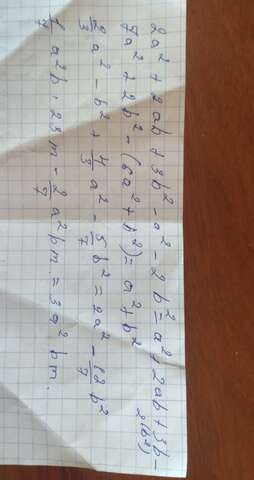 2a² + 2ab + 3b² - a² - 2b² = a² + 2ab + 3b -
2(b²)
7a² + 2b² - (6a² + b²) = a² + b²
2/3 a² - b² + 4/3 a² - 5/7 b² = 2a² - 12/7 b²
1/7 a²b · 23m - 2/7 a²bm. = 3a²bm.